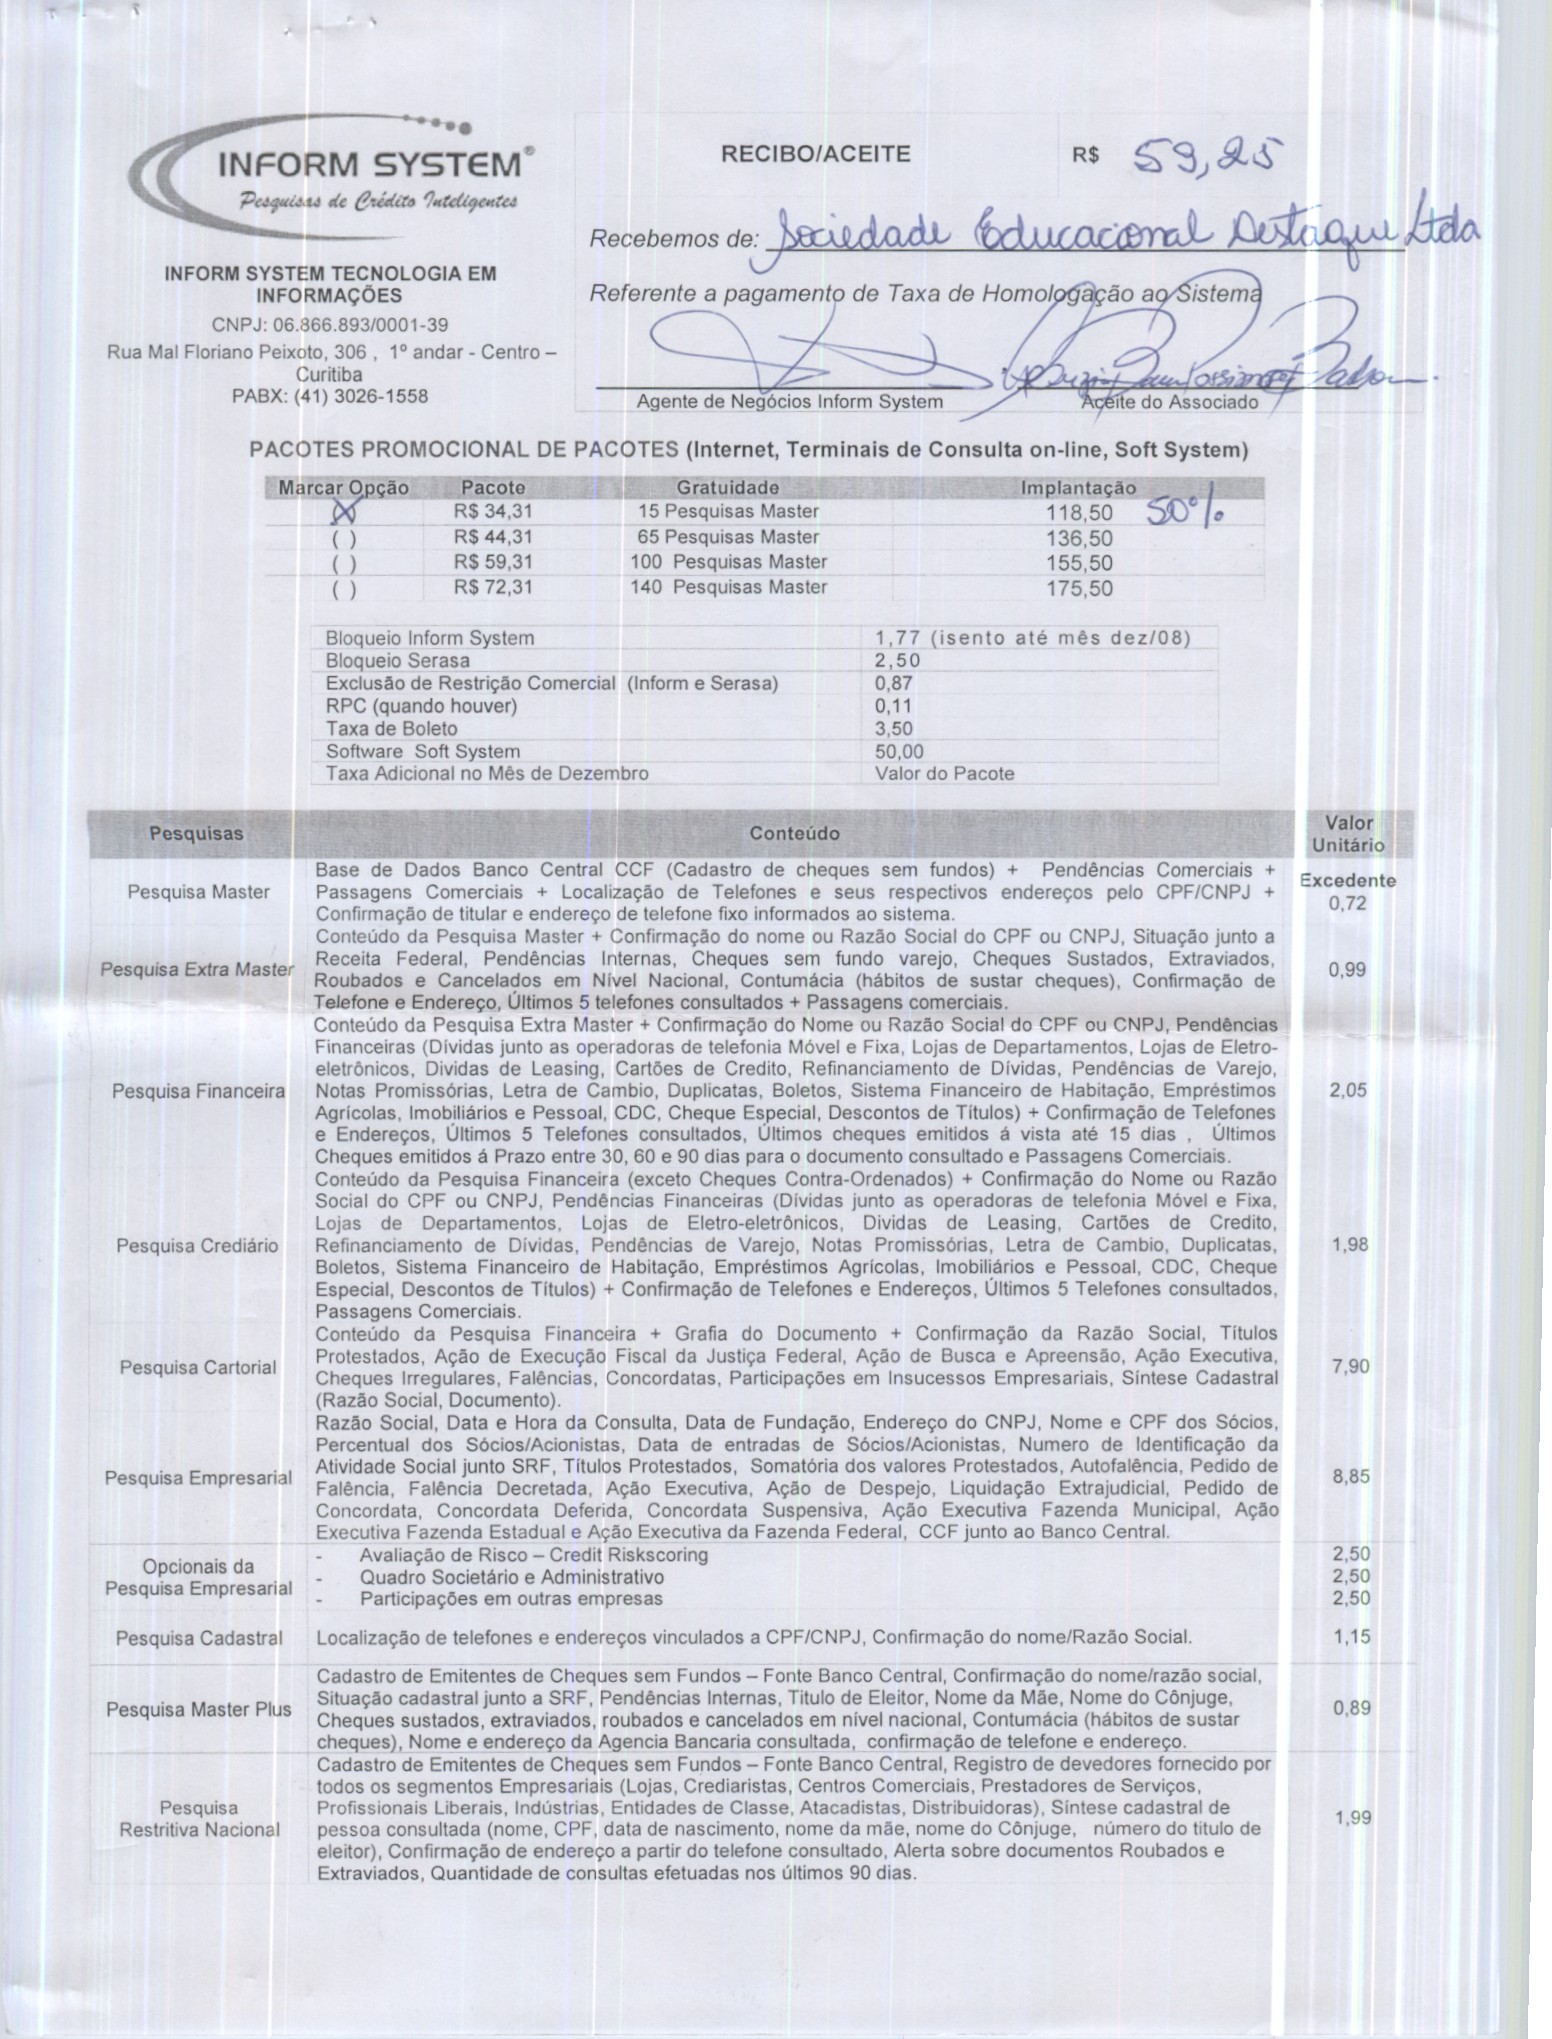 INFORM SYSTEM®
Pesquisas de Crédito Inteligentes
INFORM SYSTEM TECNOLOGIA EM
INFORMAÇÕES
CNPJ: 06.866.893/0001-39
Rua Mal Floriano Peixoto, 306 , 1º andar - Centro –
Curitiba
PABX: (41) 3026-1558
RECIBO/ACEITE R$ 59,25
Recebemos de: Sociedade Educacional Destaque Ltda
Referente a pagamento de Taxa de Homologação ao Sistema
Agente de Negócios Inform System Aceite do Associado
PACOTES PROMOCIONAL DE PACOTES (Internet, Terminais de Consulta on-line, Soft System)
Marcar Opção Pacote Gratuidade Implantação
(X) R$ 34,31 15 Pesquisas Master 118,50 50%
( ) R$ 44,31 65 Pesquisas Master 136,50
( ) R$ 59,31 100 Pesquisas Master 155,50
( ) R$ 72,31 140 Pesquisas Master 175,50
Bloqueio Inform System 1,77 (isento até mês dez/08)
Bloqueio Serasa 2,50
Exclusão de Restrição Comercial (Inform e Serasa) 0,87
RPC (quando houver) 0,11
Taxa de Boleto 3,50
Software Soft System 50,00
Taxa Adicional no Mês de Dezembro Valor do Pacote
Pesquisas Conteúdo Valor
Unitário
Pesquisa Master
Base de Dados Banco Central CCF (Cadastro de cheques sem fundos) + Pendências Comerciais +
Passagens Comerciais + Localização de Telefones e seus respectivos endereços pelo CPF/CNPJ +
Confirmação de titular e endereço de telefone fixo informados ao sistema.
Excedente
0,72
Pesquisa Extra Master
Conteúdo da Pesquisa Master + Confirmação do nome ou Razão Social do CPF ou CNPJ, Situação junto a
Receita Federal, Pendências Internas, Cheques sem fundo varejo, Cheques Sustados, Extraviados,
Roubados e Cancelados em Nível Nacional, Contumácia (hábitos de sustar cheques), Confirmação de
Telefone e Endereço, Últimos 5 telefones consultados + Passagens comerciais.
0,99
Pesquisa Financeira
Conteúdo da Pesquisa Extra Master + Confirmação do Nome ou Razão Social do CPF ou CNPJ, Pendências
Financeiras (Dívidas junto as operadoras de telefonia Móvel e Fixa, Lojas de Departamentos, Lojas de Eletro-
eletrônicos, Dividas de Leasing, Cartões de Credito, Refinanciamento de Dívidas, Pendências de Varejo,
Notas Promissórias, Letra de Cambio, Duplicatas, Boletos, Sistema Financeiro de Habitação, Empréstimos
Agrícolas, Imobiliários e Pessoal, CDC, Cheque Especial, Descontos de Títulos) + Confirmação de Telefones
e Endereços, Últimos 5 Telefones consultados, Últimos cheques emitidos á vista até 15 dias , Últimos
Cheques emitidos á Prazo entre 30, 60 e 90 dias para o documento consultado e Passagens Comerciais.
2,05
Pesquisa Crediário
Conteúdo da Pesquisa Financeira (exceto Cheques Contra-Ordenados) + Confirmação do Nome ou Razão
Social do CPF ou CNPJ, Pendências Financeiras (Dívidas junto as operadoras de telefonia Móvel e Fixa,
Lojas de Departamentos, Lojas de Eletro-eletrônicos, Dividas de Leasing, Cartões de Credito,
Refinanciamento de Dívidas, Pendências de Varejo, Notas Promissórias, Letra de Cambio, Duplicatas,
Boletos, Sistema Financeiro de Habitação, Empréstimos Agrícolas, Imobiliários e Pessoal, CDC, Cheque
Especial, Descontos de Títulos) + Confirmação de Telefones e Endereços, Últimos 5 Telefones consultados,
Passagens Comerciais.
1,98
Pesquisa Cartorial
Conteúdo da Pesquisa Financeira + Grafia do Documento + Confirmação da Razão Social, Títulos
Protestados, Ação de Execução Fiscal da Justiça Federal, Ação de Busca e Apreensão, Ação Executiva,
Cheques Irregulares, Falências, Concordatas, Participações em Insucessos Empresariais, Síntese Cadastral
(Razão Social, Documento).
7,90
Pesquisa Empresarial
Razão Social, Data e Hora da Consulta, Data de Fundação, Endereço do CNPJ, Nome e CPF dos Sócios,
Percentual dos Sócios/Acionistas, Data de entradas de Sócios/Acionistas, Numero de Identificação da
Atividade Social junto SRF, Títulos Protestados, Somatória dos valores Protestados, Autofalência, Pedido de
Falência, Falência Decretada, Ação Executiva, Ação de Despejo, Liquidação Extrajudicial, Pedido de
Concordata, Concordata Deferida, Concordata Suspensiva, Ação Executiva Fazenda Municipal, Ação
Executiva Fazenda Estadual e Ação Executiva da Fazenda Federal, CCF junto ao Banco Central.
8,85
Opcionais da
Pesquisa Empresarial
- Avaliação de Risco – Credit Riskscoring 2,50
- Quadro Societário e Administrativo 2,50
- Participações em outras empresas 2,50
Pesquisa Cadastral Localização de telefones e endereços vinculados a CPF/CNPJ, Confirmação do nome/Razão Social. 1,15
Pesquisa Master Plus
Cadastro de Emitentes de Cheques sem Fundos – Fonte Banco Central, Confirmação do nome/razão social,
Situação cadastral junto a SRF, Pendências Internas, Titulo de Eleitor, Nome da Mãe, Nome do Cônjuge,
Cheques sustados, extraviados, roubados e cancelados em nível nacional, Contumácia (hábitos de sustar
cheques), Nome e endereço da Agencia Bancaria consultada, confirmação de telefone e endereço.
0,89
Pesquisa
Restritiva Nacional
Cadastro de Emitentes de Cheques sem Fundos – Fonte Banco Central, Registro de devedores fornecido por
todos os segmentos Empresariais (Lojas, Crediaristas, Centros Comerciais, Prestadores de Serviços,
Profissionais Liberais, Indústrias, Entidades de Classe, Atacadistas, Distribuidoras), Síntese cadastral de
pessoa consultada (nome, CPF, data de nascimento, nome da mãe, nome do Cônjuge, número do titulo de
eleitor), Confirmação de endereço a partir do telefone consultado, Alerta sobre documentos Roubados e
Extraviados, Quantidade de consultas efetuadas nos últimos 90 dias.
1,99